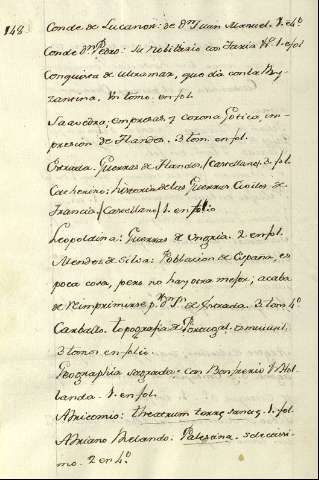 148
Conde de Lucanor: de Dn Juan Manuel. 1. e 4º
Conde Dn Pedro: su Nobiliario con Faria 1. fol
Conquista de ultramar, que da con la By-
zantina. Un tomo en fol.
Saavedra, empresas, y corona Gotica, im-
presion de Flandes. 3 tom. en fol.
Estrada. Guerras de Flandes, (castellano) 3 fol.
Catherino: historia de las Guerras Civiles de
Francia, (Castellano) 1. en folio
Leopoldina: Guerras de Ungria. 2 en fol.
Mendes de Silva: Poblacion de España, es
poca cosa, pero no hay otra mejor; acaba
de Reimprimirse pr Dn de Estrada. 3 tom. 4º
Carballo. topografia de Portugal.
3 tomos en folio.
Geographia sagrada: con Bonfrerio Hol
landa. 1. en fol.
Adricomio: theatrum terræ sanctæ. 1. fol.
Adriano Relando. Palestina.
mo. 2 en 4º